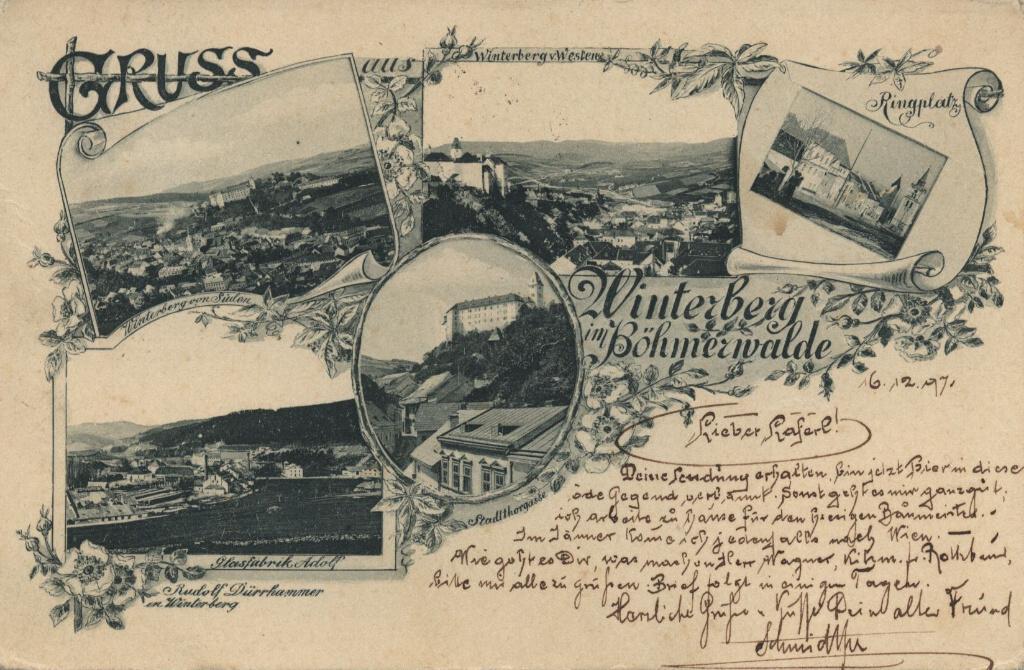 GRUSS aus
Winterberg v. Westen
Ringplatz
Winterberg von Süden
Winterberg
im Böhmerwalde
Stadtthorgasse
Glasfabrik Adolf
Rudolf Dürrhammer
in Winterberg
16.12.97.
Lieber Käferl!
Deine Sendung erhalten, bin jetzt hier in diese
öde Gegend verbannt. Sonst geht es mir ganz gut,
ich arbeite zu Hause für den hiesigen Baumeister.
Im Jänner kome ich jedenfalls nach Wien.
Wie geht es Dir, was machen Herr Wagner,
bitte mir alle zu grüßen. Brief folgt in einigen Tagen.
Herzliche Grüße u. Küsse Dein alter Freund